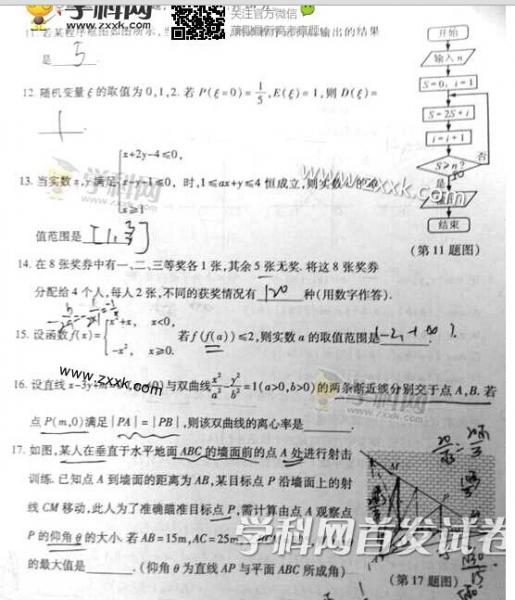 学科网
www.zxxk.com
关注官方微信
获得最新高考真题
11. 若某程序框图如图所示, 当 输出的结果
是 5
12. 随机变量ξ的取值为0,1,2. 若P(ξ=0)=1/5, E(ξ)=1, 则D(ξ)=
13. 当实数x,y满足 { x+2y-4≤0, x-y-1≤0, x≥1 时, 1≤ax+y≤4恒成立, 则实数a的取
值范围是[1, 3/2]
14. 在8张奖券中有一、二、三等奖各1张, 其余5张无奖. 将这8张奖券
分配给4个人, 每人2张, 不同的获奖情况有 120 种(用数字作答).
15. 设函数f(x)= { x²+x, x<0, -x², x≥0. 若f(f(a))≤2, 则实数a的取值范围是
16. 设直线x-3y+m=0 ≠0)与双曲线x²/a²-y²/b²=1(a>0,b>0)的两条渐近线分别交于点A,B. 若
点P(m,0)满足|PA|=|PB|, 则该双曲线的离心率是
17. 如图, 某人在垂直于水平地面ABC的墙面前的点A处进行射击
训练. 已知点A到墙面的距离为AB, 某目标点P沿墙面上的射
线CM移动, 此人为了准确瞄准目标点P, 需计算由点A观察点
P的仰角θ的大小. 若AB=15m, AC=25m,
的最大值是 . (仰角θ为直线AP与平面ABC所成角)
开始
输入n
S=0, i=1
S=2S+i
i=i+1
S≥n?
否
是
结束
(第11题图)
学科网
www.zxxk.com
学科网
www.zxxk.com
学科网
M
P
(第17题图)
学科网首发试卷